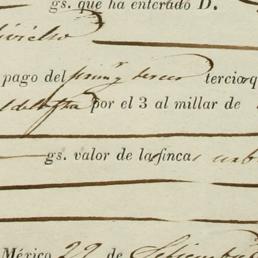 gs. que ha enterado D.
pago del primº y tercer tercio q
por el 3 al millar de
gs. valor de la finca urb
México 22 de Setiembre